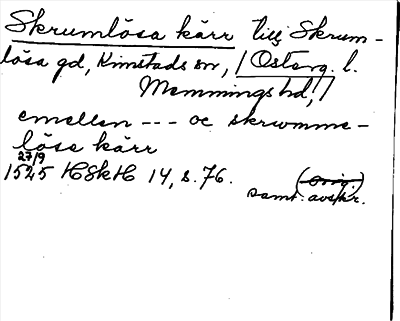 Skrumlösa kärr till Skrum-
lösa gd, Kimstads sn, / Österg. l.
Memmings hd, /
emellen --- oc skrwmme-
lösa kärr
27/9
1545 HSkH 14, s. 76. (orig.)
samt. avskr.